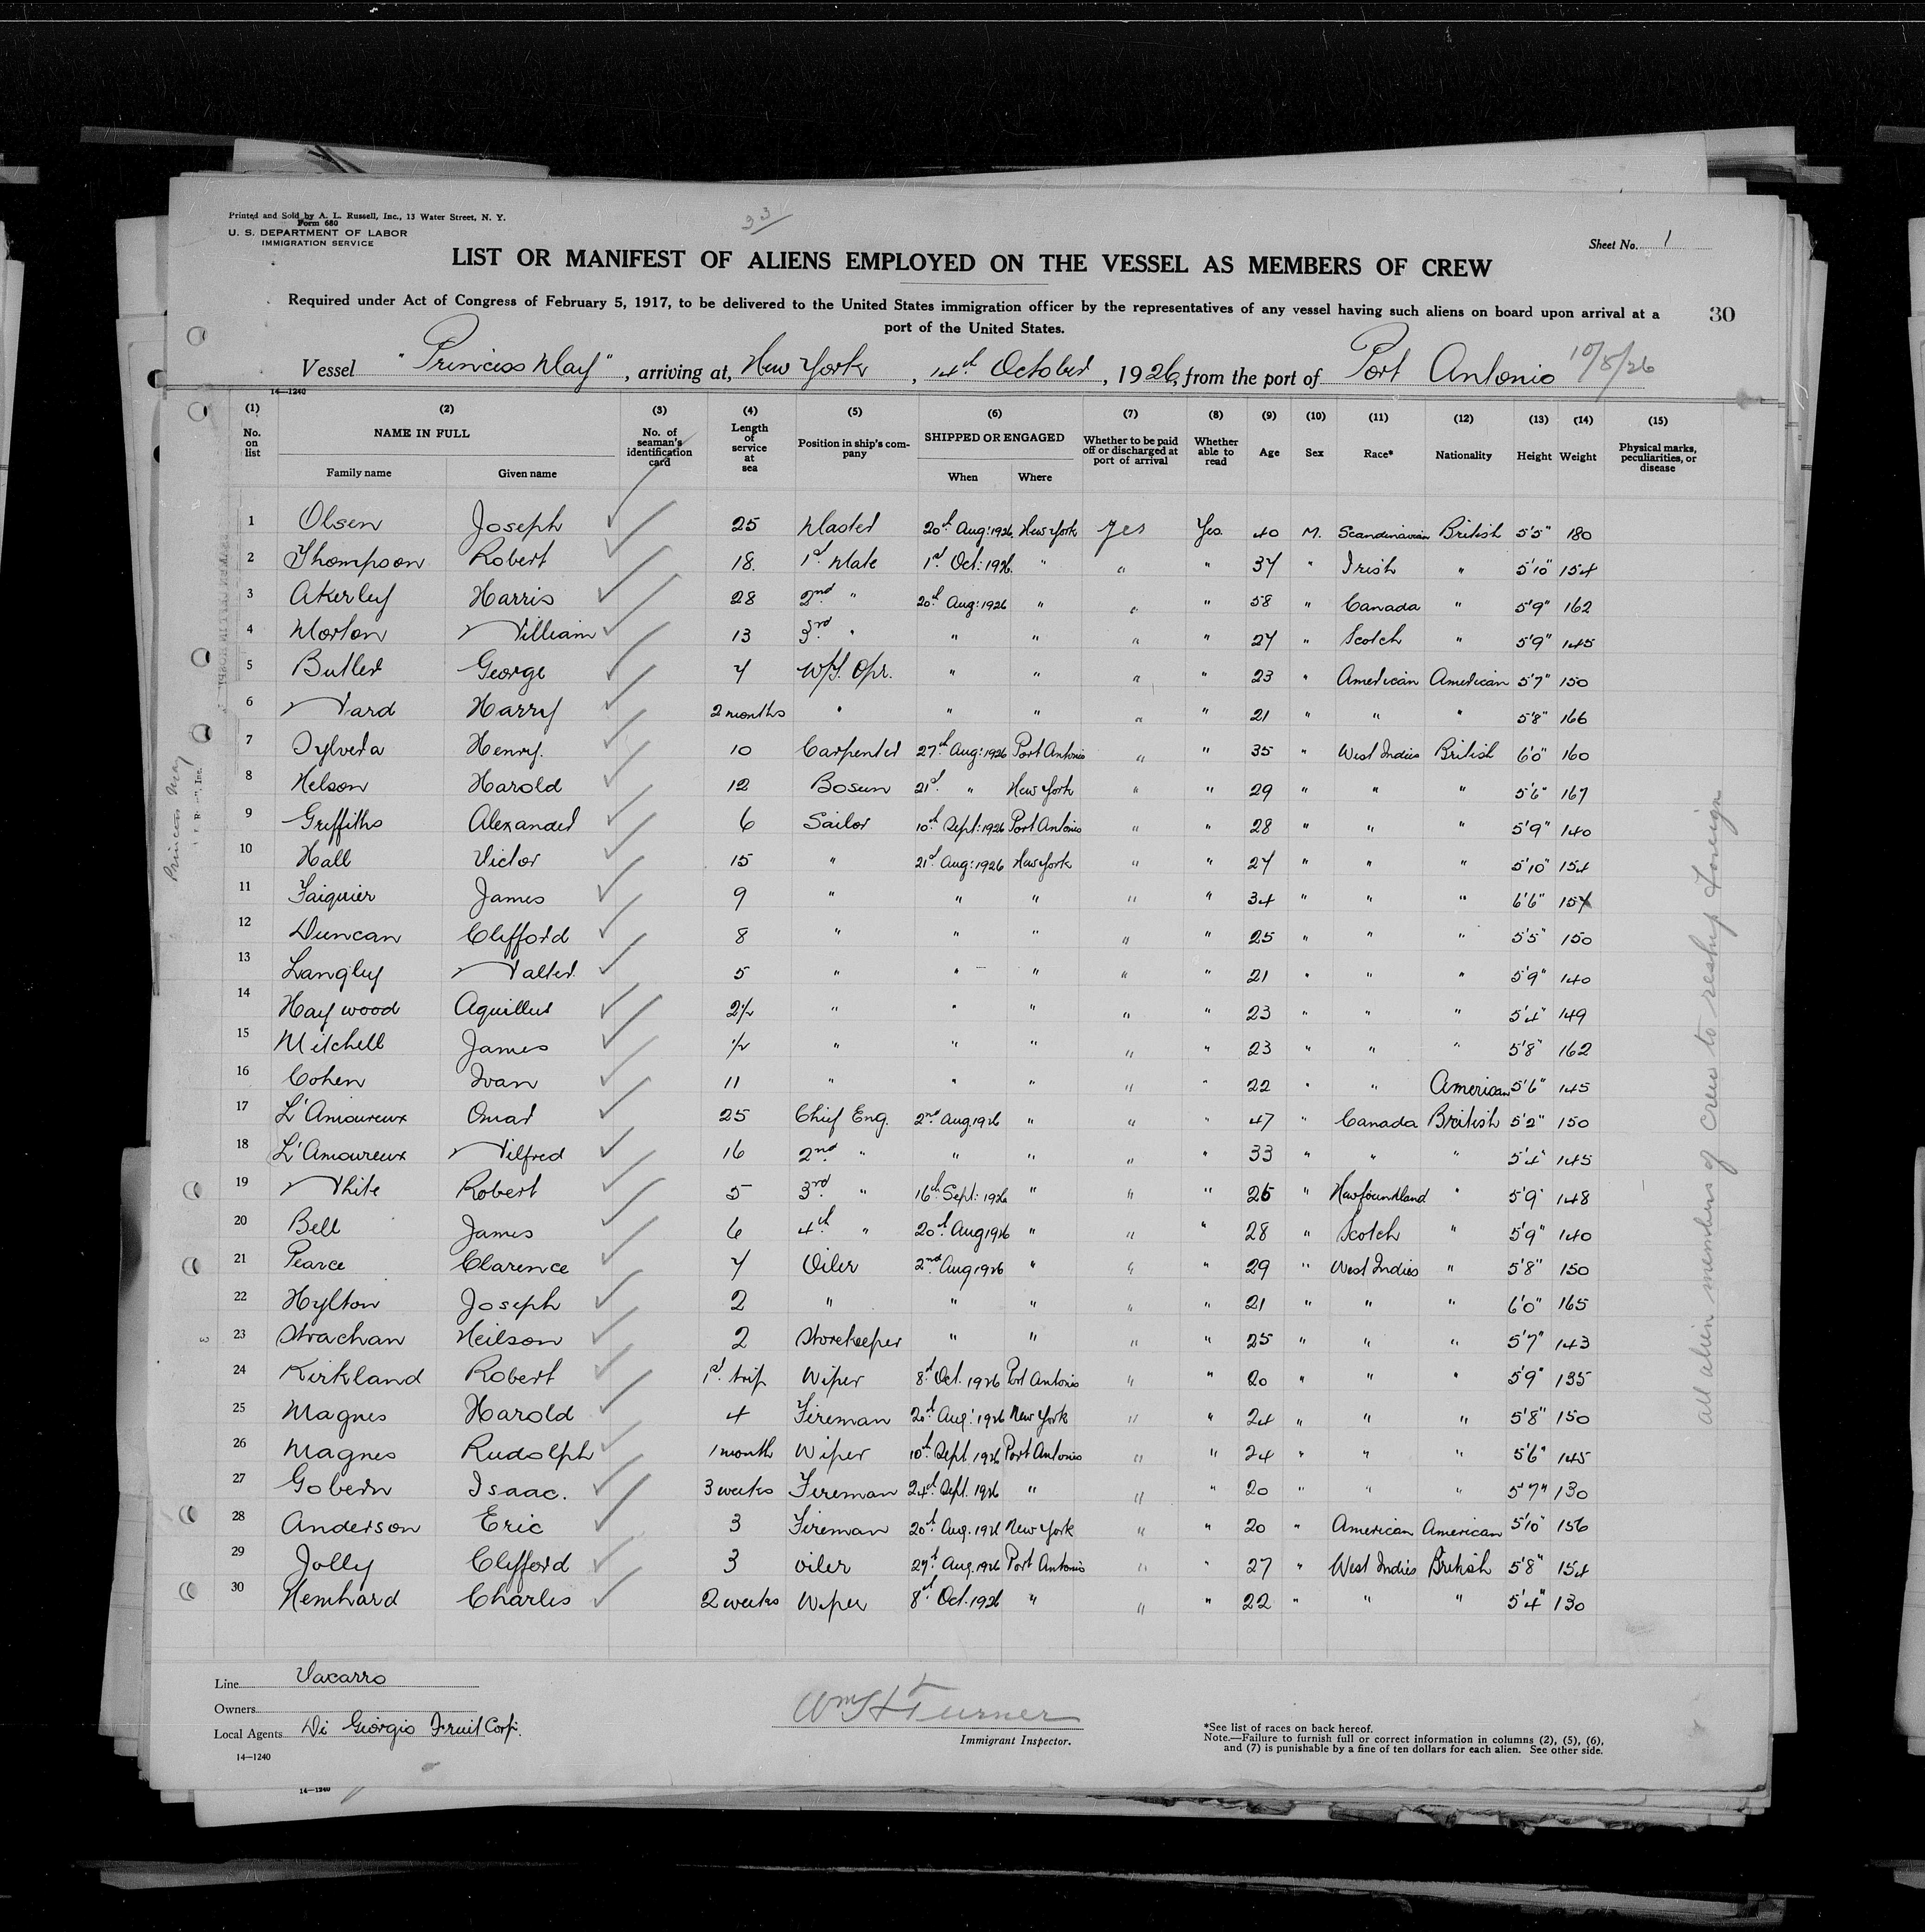 Printed and Sold by A. L. Russell, Inc., 13 Water Street, N. Y.
Form 680
U. S. DEPARTMENT OF LABOR
IMMIGRATION SERVICE
33
Sheet No. 1
LIST OR MANIFEST OF ALIENS EMPLOYED ON THE VESSEL AS MEMBERS OF CREW
Required under Act of Congress of February 5, 1917, to be delivered to the United States immigration officer by the representatives of any vessel having such aliens on board upon arrival at a
port of the United States.
30
Vessel "Princess May", arriving at, New York, 14th October, 1926, from the port of Port Antonio 10/8/26
14—1240
(1) (2) (3) (4) (5) (6) (7) (8) (9) (10) (11) (12) (13) (14) (15)
No. on list NAME IN FULL Family name Given name No. of seaman's identification card Length of service at sea Position in ship's company SHIPPED OR ENGAGED When Where Whether to be paid off or discharged at port of arrival Whether able to read Age Sex Race* Nationality Height Weight Physical marks, peculiarities, or disease
1 Olsen Joseph 25 Master 20th Aug: 1926 New York Yes Yes. 40 M. Scandinavian British 5'5" 180
2 Thompson Robert 18. 1st Mate 1st Oct: 1926 " " " 37 " Irish " 5'10" 154
3 Akerley Harris 28 2nd " 20th Aug: 1926 " " " 58 " Canada " 5'9" 162
4 Morton William 13 3rd " " " " " 27 " Scotch " 5'9" 145
5 Butler George 7 W/T. Opr. " " " " 23 " American American 5'7" 150
6 Ward Harry 2 months " " " " " 21 " " " 5'8" 166
7 Sylvera Henry. 10 Carpenter 27th Aug: 1926 Port Antonio " " 35 " West Indies British 6'0" 160
8 Nelson Harold 12 Bosun 21st " New York " " 29 " " " 5'6" 167
9 Griffiths Alexander 6 Sailor 10th Sept: 1926 Port Antonio " " 28 " " " 5'9" 140
10 Hall Victor 15 " 21st Aug: 1926 New York " " 27 " " " 5'10" 154
11 Faiquier James 9 " " " " " 34 " " " 6'6" 157
12 Duncan Clifford 8 " " " " " 25 " " " 5'5" 150
13 Langley Walter. 5 " " " " " 21 " " " 5'9" 140
14 Haywood Aquillus 2½ " " " " " 23 " " " 5'4" 149
15 Mitchell James ½ " " " " " 23 " " " 5'8" 162
16 Cohen Ivan 11 " " " " " 22 " " American 5'6" 145
17 L'Amoureux Omar 25 Chief Eng. 2nd Aug 1926 " " " 47 " Canada British 5'2" 150
18 L'Amoureux Wilfred 16 2nd " " " " " 33 " " " 5'4" 145
19 White Robert 5 3rd " 16th Sept: 1926 " " " 25 " Newfoundland " 5'9" 148
20 Bell James 6 4th " 20th Aug 1926 " " " 28 " Scotch " 5'9" 140
21 Pearce Clarence 7 Oiler 2nd Aug 1926 " " " 29 " West Indies " 5'8" 150
22 Hylton Joseph 2 " " " " " 21 " " " 6'0" 165
23 Strachan Neilson 2 Storekeeper " " " " 25 " " " 5'7" 143
24 Kirkland Robert 1st trip Wiper 8th Oct. 1926 Port Antonio " " 20 " " " 5'9" 135
25 Magnes Harold 4 Fireman 20th Aug: 1926 New York " " 24 " " " 5'8" 150
26 Magnes Rudolph 1 month Wiper 10th Sept. 1926 Port Antonio " " 24 " " " 5'6" 145
27 Gobern Isaac. 3 weeks Fireman 24th Sept. 1926 " " " 20 " " " 5'7" 130
28 Anderson Eric 3 Fireman 20th Aug. 1926 New York " " 20 " American American 5'10" 156
29 Jolly Clifford 3 oiler 27th Aug. 1926 Port Antonio " " 27 " West Indies British 5'8" 154
30 Hemhard Charles 2 weeks Wiper 8th Oct. 1926 " " " 22 " " " 5'4" 130
All alien members of crew to reship foreign
Princess May
Line Vacarro
Owners
Local Agents Di Giorgio Fruit Corp.
14—1240
Wm H Turner
Immigrant Inspector.
*See list of races on back hereof.
Note.—Failure to furnish full or correct information in columns (2), (5), (6),
and (7) is punishable by a fine of ten dollars for each alien. See other side.
14—1240